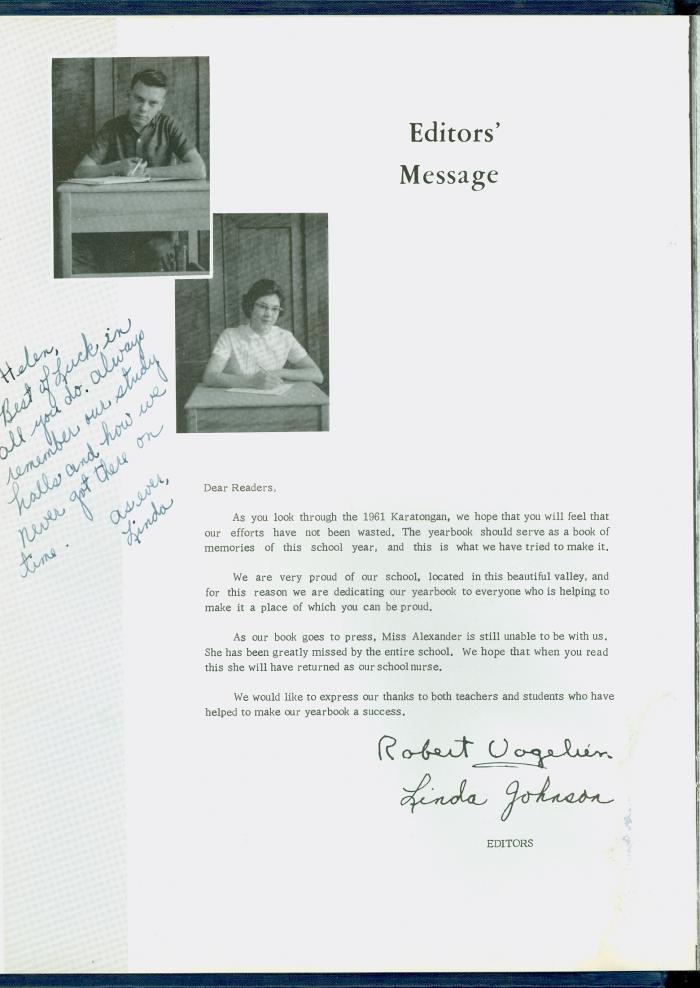 Editors'
Message
Helen,
Best of Luck in
all you do. always
remember our study
halls and how we
never got there on
time.
as ever,
Linda
Dear Readers,
As you look through the 1961 Karatongan, we hope that you will feel that
our efforts have not been wasted. The yearbook should serve as a book of
memories of this school year, and this is what we have tried to make it.
We are very proud of our school, located in this beautiful valley, and
for this reason we are dedicating our yearbook to everyone who is helping to
make it a place of which you can be proud.
As our book goes to press, Miss Alexander is still unable to be with us.
She has been greatly missed by the entire school. We hope that when you read
this she will have returned as our school nurse.
We would like to express our thanks to both teachers and students who have
helped to make our yearbook a success.
Robert Vogelien
Linda Johnson
EDITORS